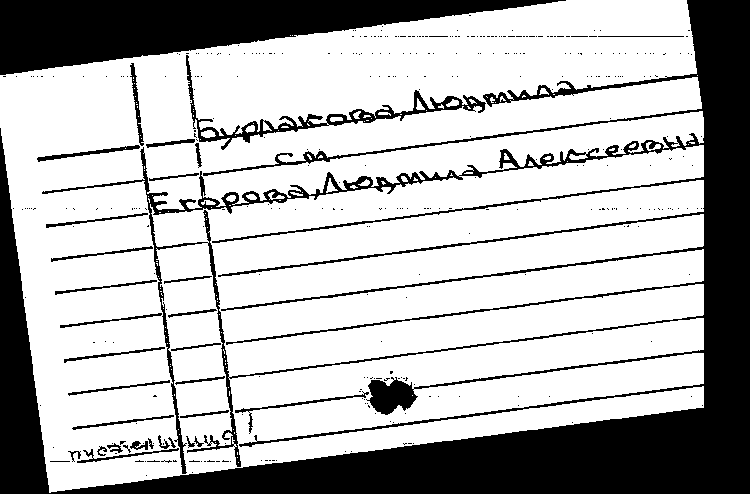 Бурлакова, Людмила.
см
Егорова, Людмила Алексеевна
писательница!